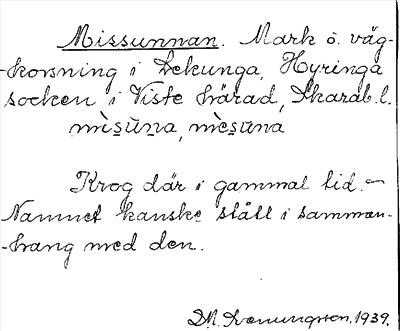 Missunnan. Mark o. väg-
-korsning i Lekunga, Hyringa
socken i Viste härad, Skarab.l.
mìsu̇na, mèsu̇na
Krog där i gammal tid. —
Namnet kanske stått i samman-
-hang med den.
1939.